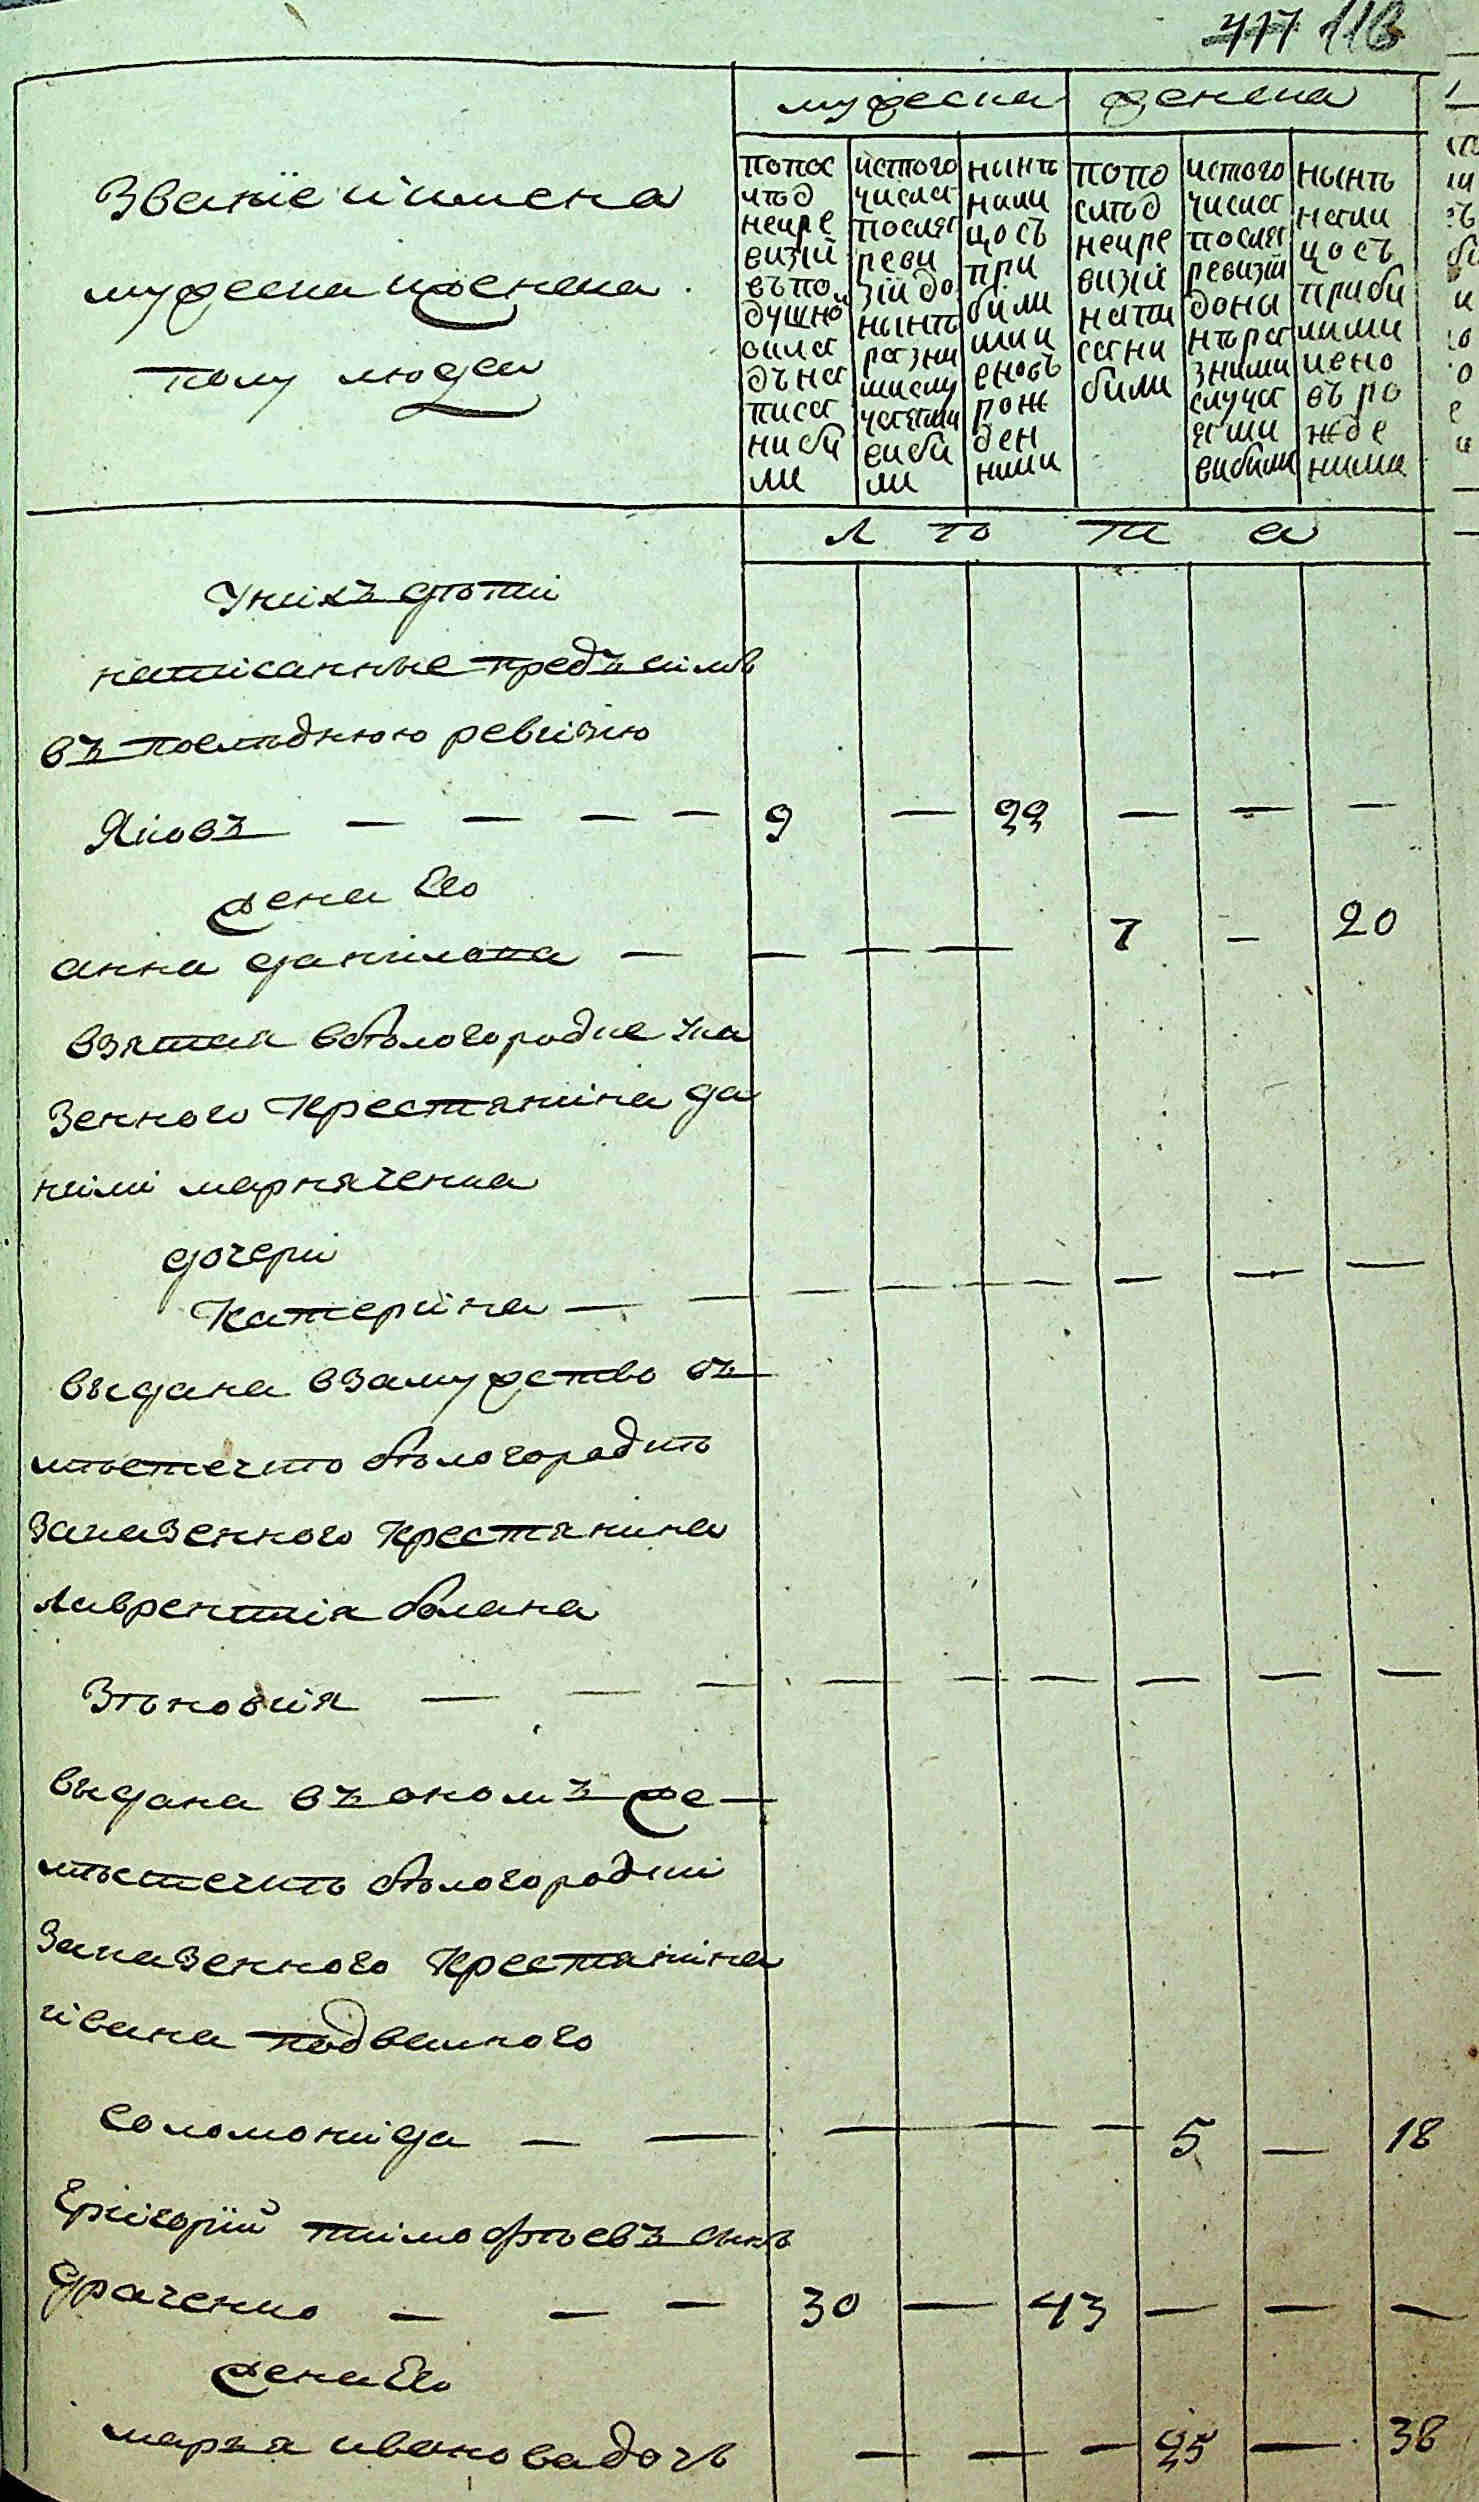 417 118
мужеска женска
Званїе и имена
мужеска и женска
полу людей
попос
лѣд
ней ре
визїй
въ по
душно
окла
дъ на
писа
ни бы
ли
истого
числа
послѣ
реви
зїй до
нынѣ
разни
ми слу
чаями
виби
ли
нынѣ
нали
цо съ
при
били
ми и
вновъ
рож
ден
ними
попо
слѣд
ней ре
визїй
напи
сани
били
истого
числа
послѣ
ревизїи
до ны
нѣ ра
зними
случа
ями
вибили
нынѣ
нали
цо съ
приби
лими
и но
въ ро
жде
ними
л ѣ т а
У нихъ дѣти
написанные предъ симъ
въ последнюю ревизію
Яковъ — — — — 9 — 22 — — —
жена Его
анна данилова — — — — 7 — 20
взятая в бѣлогородке ка
зенного крестянина да
нили марняченка
дочери
Катерина — — — — — — — — —
выдана взамужство въ
мѣстечко бѣлогородкѣ
за казенного крестянина
Лаврентія блана
Зѣновия — — — — — — — — —
выдана въ ономъ же —
мѣстечкѣ бѣлогородки
за казенного крестянина
ивана подвашного
соломонида — — — — — 5 — 18
Григорїй тимофѣевъ сынъ
драченко — — — 30 — 43 — — —
жена Его
марья иванова дочъ — — — 25 — 38